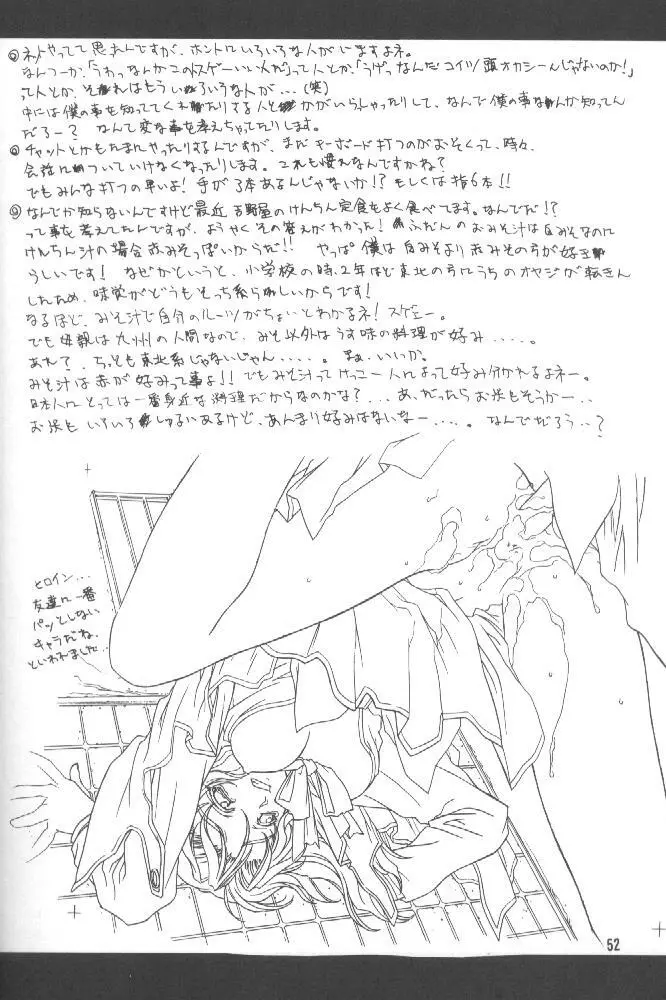 ◎ネットやってて思ったんですが、ホントにいろいろな人がいますよネ。
なんつーか、「うわっなんかこのスゲーいい人だ」って人とか、「うげっなんだコイツ!頭オカシーんじゃないのか!」
って人とか、それはもういろいろいうな人が...(笑)
中には僕の事を知っててくれたりする人とかがいらしゃったりして、なんで僕の事なんか知ってん
だろー? なんて変な事を考えちゃったりします。
◎チャットとかもたまにやったりするんですが、まだキーボード打つのがおそくって、時々、
会話についていけなくなったりします。これも慣れなんですかね?
でもみんな打つの早いよ!手が3本あるんじゃないか!?もしくは指6本!!
◎なんでか知らないんですけど最近、吉野屋のけんちん定食をよく食べてます。なんでだ!?
って事を考えてたんですが、ようやくその答えがわかった!ふだんのおみそ汁は白みそなのに
けんちん汁の場合赤みそっぽいからだ!! やっぱ僕は白みそより赤みその方が好き
らしいです! なぜかというと、小学校の時、2年ほど東北の方にうちのオヤジが転きん
したため、味覚がどうもそっち系らしいからです!
なるほど、みそ汁で自分のルーツがちょいとわかるネ!スゲェー。
でも母親は九州の人間なので、みそ以外はうす味の料理が好み....。
あれ?、ちっとも東北系じゃないじゃん.....。まぁ、いいか。
みそ汁は赤が好みって事よ!!でもみそ汁ってけっこー人によって好み分かれるよネー。
日本人にとっては一番身近な料理だからなのかな?...あ、だったらお米もそうかー..
お米もいろいろしゅるいあるけど、あんまり好みはないなー....。なんでだろう..?
ヒロイン...
友達に一番
パッとしない
キャラだね、
といわれました...
52